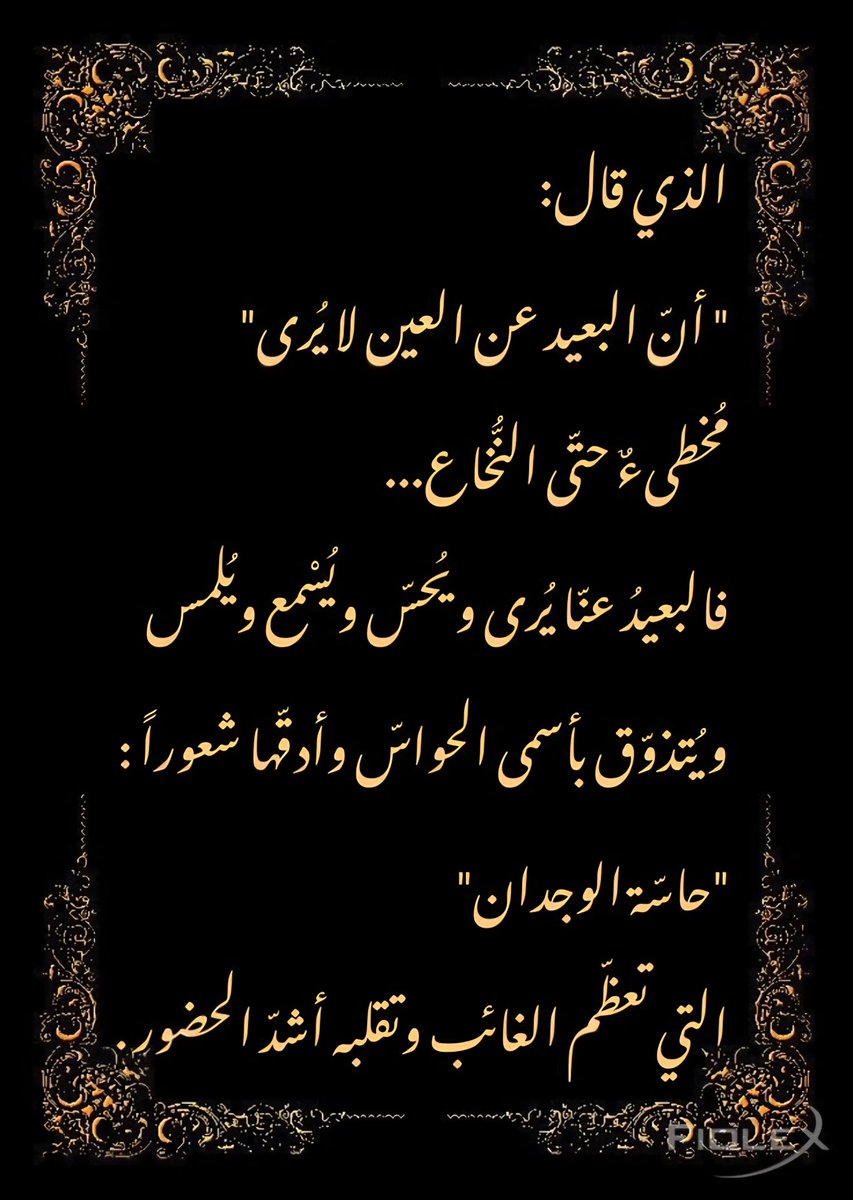 الذي قال:
" أنّ البعيد عن العين لا يُرى"
مُخطىءٌ حتّى النُّخاع...
فالبعيدُ عنّا يُرى ويُحسّ ويُسْمع ويُلمس
ويُتذوّق بأسمى الحواسّ وأدقّها شعوراً :
"حاسّة الوجدان"
التي تعظّم الغائب وتقلبه أشدّ الحضور.
PIQLEX